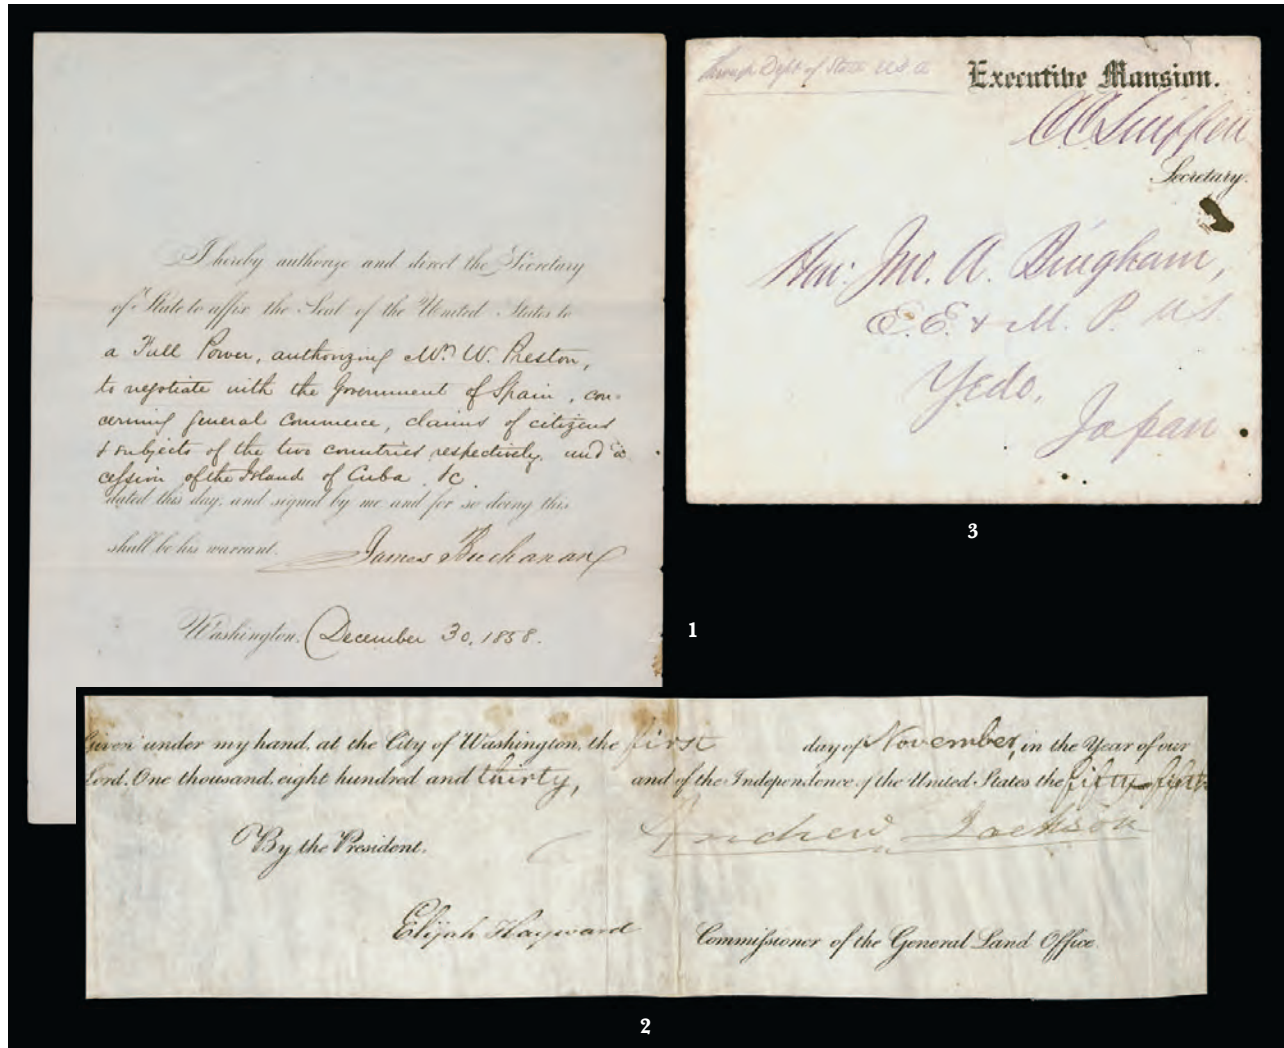 I hereby authorize and direct the Secretary
of State to affix the Seal of the United States to
a Full Power, authorizing Mr. W. Preston,
to negotiate with the Government of Spain, con-
cerning general commerce, claims of citizens
& subjects of the two countries respectively, and a
cession of the Island of Cuba &c
dated this day, and signed by me and for so doing this
shall be his warrant.
James Buchanan
Washington, December 30, 1858.
1
Through Dept of State U.S.A
Executive Mansion.
C.C. Sniffen
Secretary.
Hon: Jno. A. Bingham,
E.E. & M. P. U.S.
Yedo,
Japan
3
Given under my hand, at the City of Washington, the first day of November, in the Year of our
Lord, One thousand, eight hundred and thirty, and of the Independence of the United States the fifty-fifth
Andrew Jackson
By the President.
Elijah Hayward
Commissioner of the General Land Office.
2